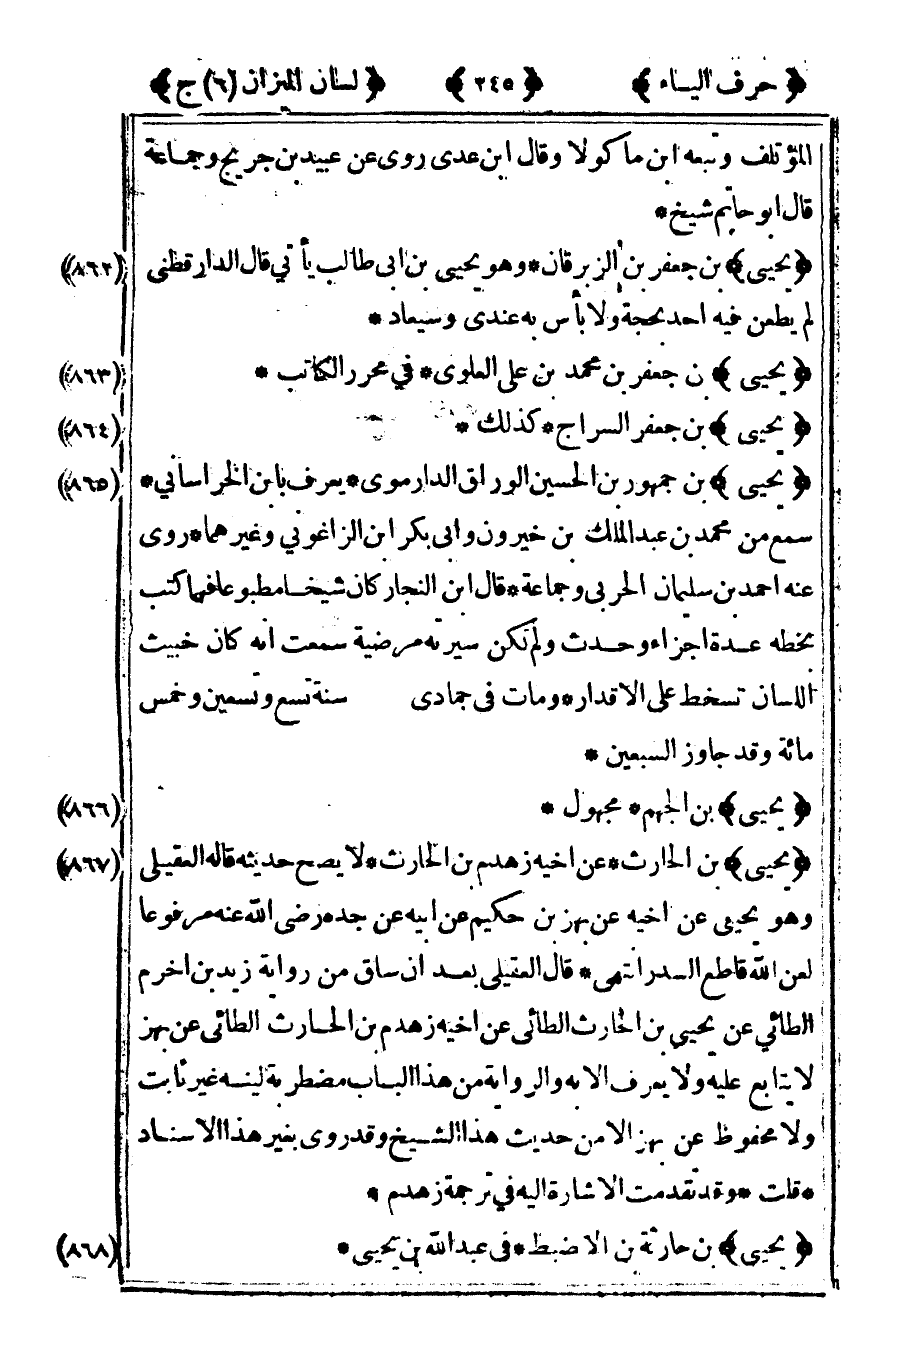 ﴿ حرف الياء ﴾ ﴿ ٢٤٥ ﴾ ﴿ لسان الميزان (٦) ج ﴾
المؤتلف وتبعه ابن ماكولا وقال ابن عدى روى عن عبيد بن جريج وجماعة
قال ابو حاتم شيخ *
﴿ يحيى ﴾ بن جعفر بن الزبرقان * وهو يحيى بن ابى طالب يأتي قال الدارقطنى (٨٦٢)
لم يطعن فيه احد بحجة ولا بأس به عندى وسيعاد *
﴿ يحيى ﴾ ن جعفر بن محمد بن على العلوى * في محرر الكاتب * (٨٦٣)
﴿ يحيى ﴾ بن جعفر السراج * كذلك * (٨٦٤)
﴿ يحيى ﴾ بن جمهور بن الحسين الوراق الدارموى * يعرف بابن الخراسانى * (٨٦٥)
سمع من محمد بن عبد الملك بن خيرون وابى بكر ابن الزاغونى وغيرهما * روى
عنه احمد بن سليمان الحربى وجماعة * قال ابن النجار كان شيخا مطبوعا فهما كتب
بخطه عدة اجزاء وحدث ولم تكن سيرته مرضية سمعت انه كان خبيث
اللسان تسخط على الاقدار * ومات فى جمادى سنة تسع وتسعين وخمس
مائة وقد جاوز السبعين *
﴿ يحيى ﴾ بن الجهم * مجهول * (٨٦٦)
﴿ يحيى ﴾ بن الحارث * عن اخيه زهدم بن الحارث * لا يصح حديثه قاله العقيلى (٨٦٧)
وهو يحيى عن اخيه عن بهز بن حكيم عن ابيه عن جده رضى الله عنه مرفوعا
لعن الله قاطع السدر انتهى * قال العقيلى بعد ان ساق من رواية زيد بن اخرم
الطائي عن يحيى بن الحارث الطائى عن اخيه زهدم بن الحارث الطائى عن بهز
لا يتابع عليه ولا يعرف الا به والرواية من هذا الباب مضطربة لينة غير ثابت
ولا محفوظ عن بهز الا من حديث هذا الشيخ وقد روى بغير هذا الاسناد
* قلت * وقد تقدمت الاشارة اليه في ترجمة زهدم *
﴿ يحيى ﴾ بن حارثة بن الاضبط * فى عبد الله بن يحيى * (٨٦٨)